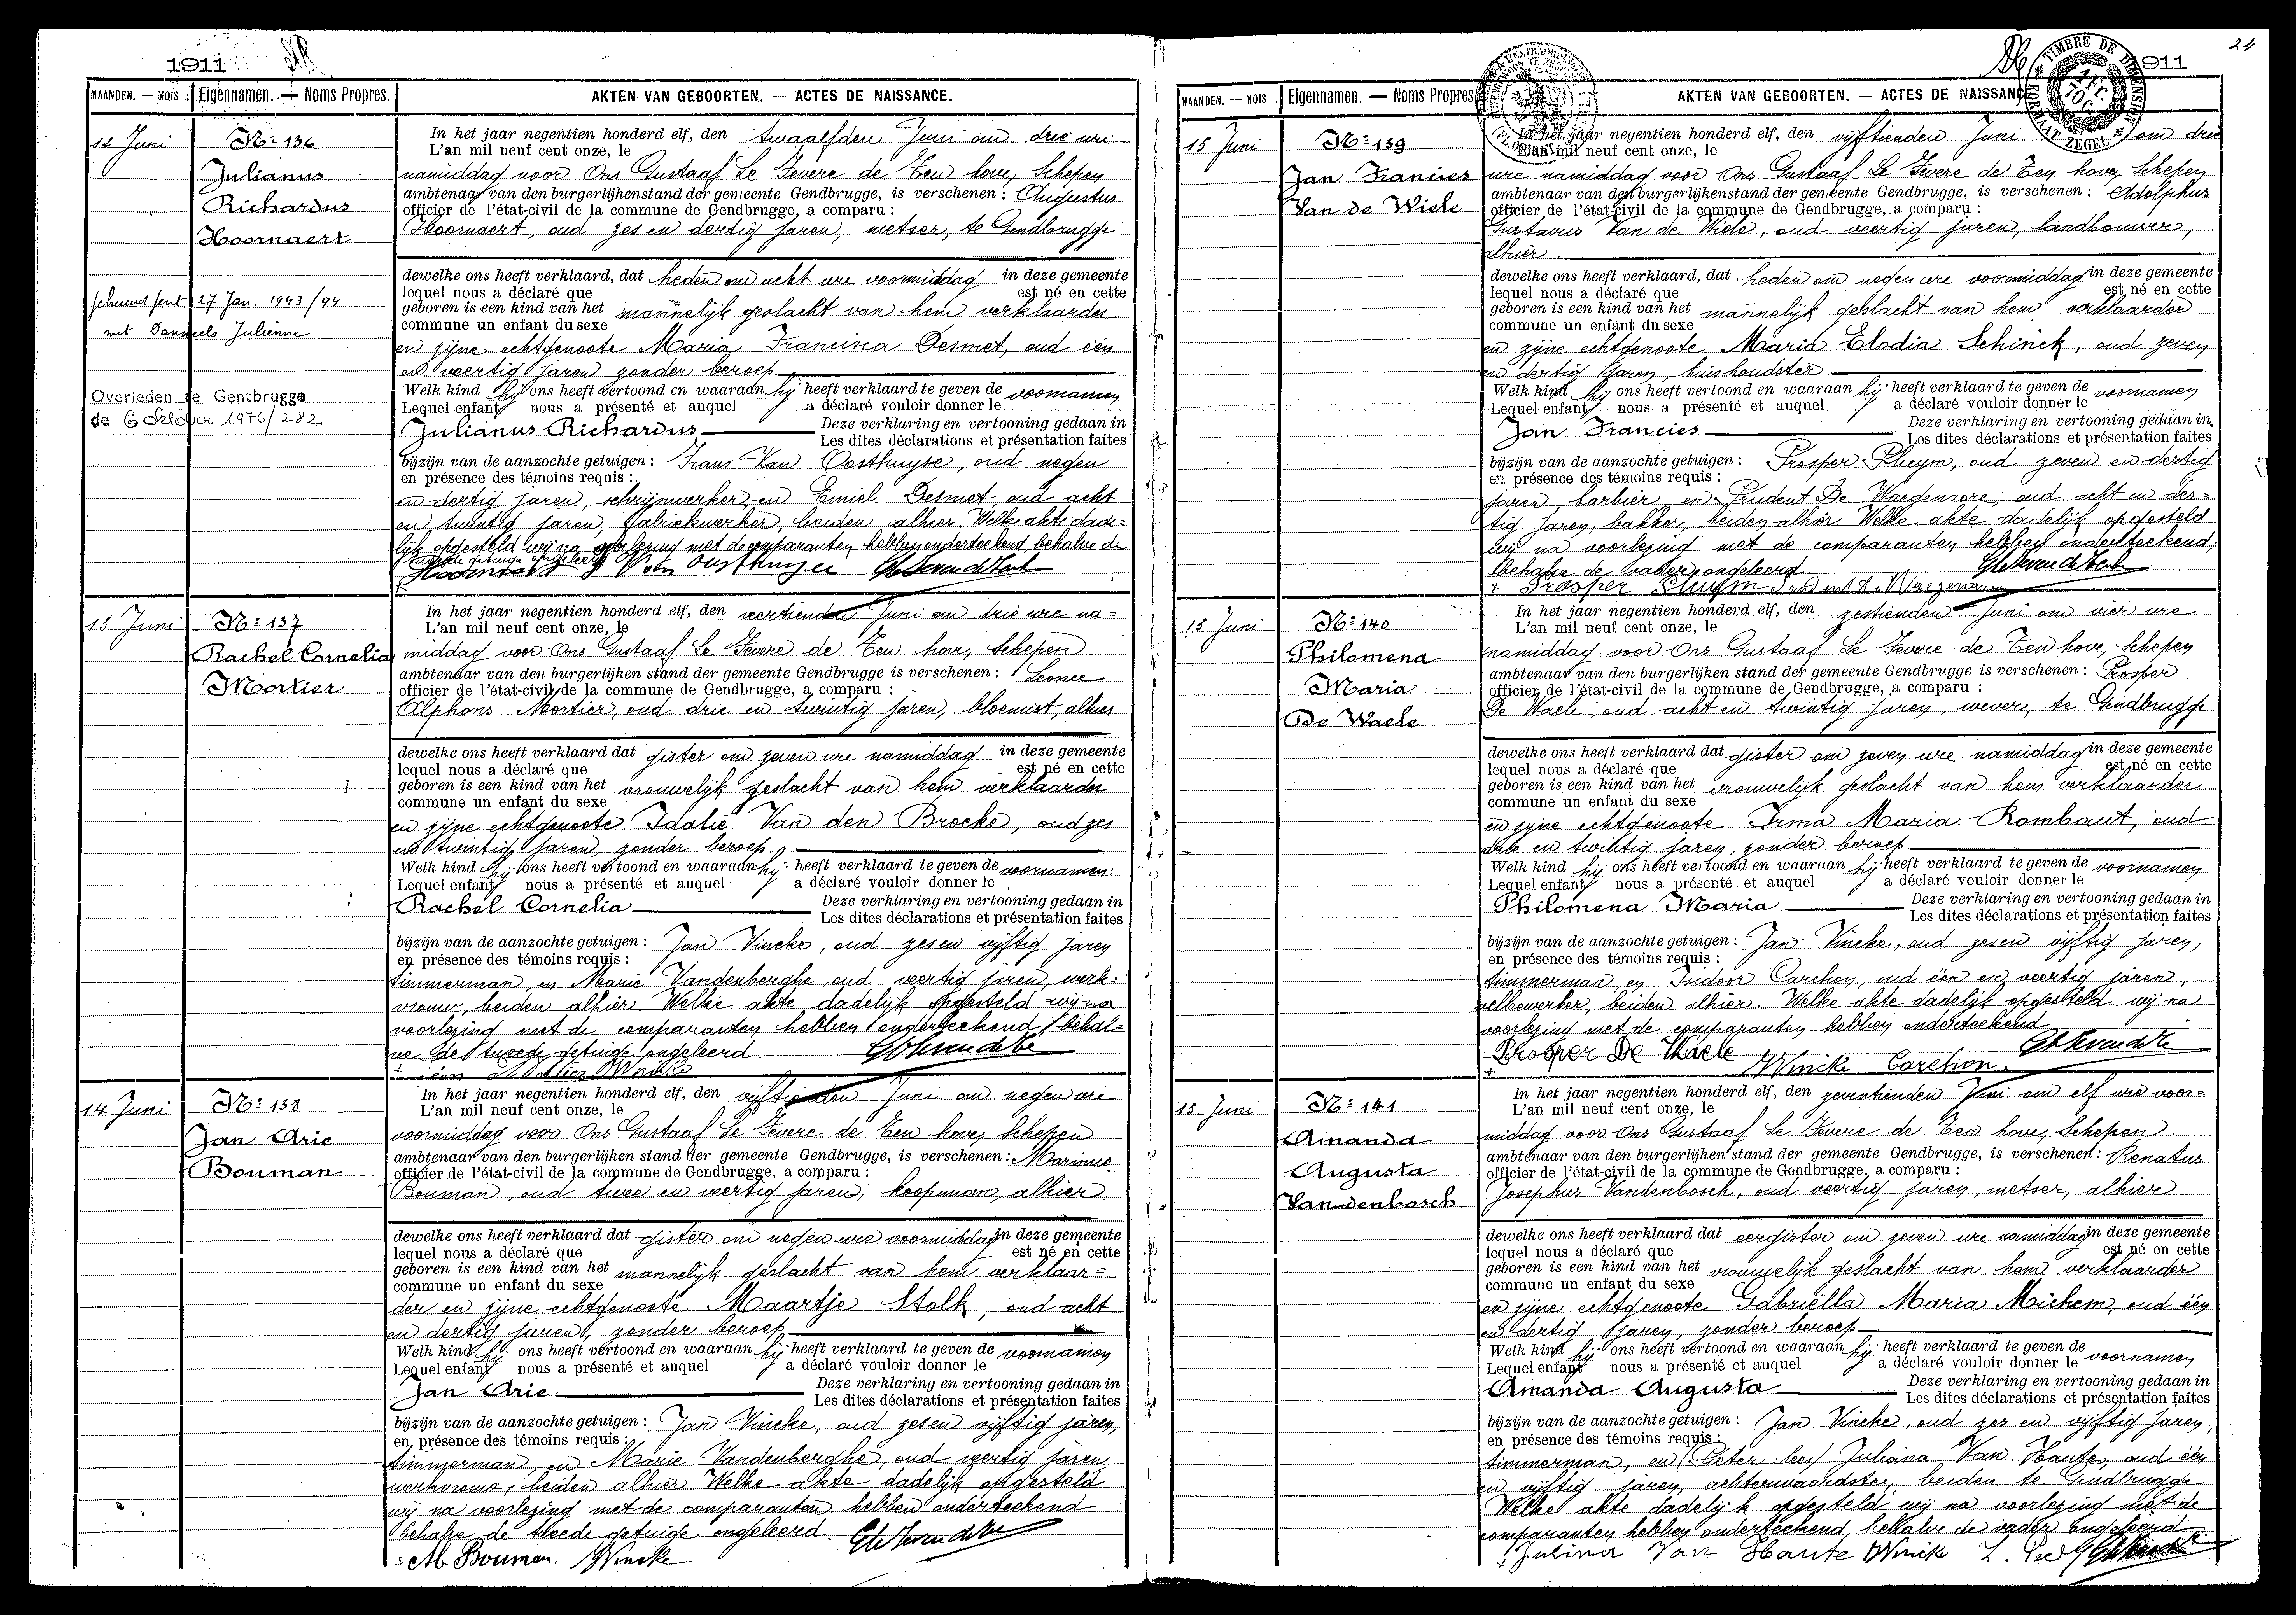 1911
MAANDEN. — MOIS
Eigennamen. — Noms Propres.
AKTEN VAN GEBOORTEN. — ACTES DE NAISSANCE.
12 Juni
No: 136
Julianus
Richardus
Hoornaert
27 Jan. 1943/94
met Danneels Julienne
Overleden te Gentbrugge
de 6 October 1976/282
In het jaar negentien honderd elf, den twaalfden Juni om drie ure
L'an mil neuf cent onze, le
namiddag voor Ons Gustaaf Le Fevere de Ten hove, Schepen
ambtenaar van den burgerlijkenstand der gemeente Gendbrugge, is verschenen: Augustus
officier de l'état-civil de la commune de Gendbrugge, a comparu:
Hoornaert, oud zes en dertig jaren, metser, te Gendbrugge
dewelke ons heeft verklaard, dat heden om acht ure voormiddag in deze gemeente
lequel nous a déclaré que est né en cette
geboren is een kind van het mannelijk geslacht van hem verklaarder
commune un enfant du sexe
en zijne echtgenoote Maria Francisca Desmet, oud één
en veertig jaren zonder beroep
Welk kind hij ons heeft vertoond en waaraan hij heeft verklaard te geven de voornamen
Lequel enfant nous a présenté et auquel a déclaré vouloir donner le
Julianus Richardus Deze verklaring en vertooning gedaan in
Les dites déclarations et présentation faites
bijzijn van de aanzochte getuigen: Frans Van Oosthuyse, oud negen
en présence des témoins requis:
en dertig jaren, schrijnwerker en Emiel Desmet, oud acht
en twintig jaren, fabriekwerker, beiden alhier Welke akte dade-
lijk opgesteld wij na voorlezing met de comparanten hebben onderteekend behalve de
13 Juni
No: 137
Rachel Cornelia
Mortier
In het jaar negentien honderd elf, den veertienden Juni om drie ure na-
L'an mil neuf cent onze, le
middag voor Ons Gustaaf Le Fevere de Ten hove, Schepen
ambtenaar van den burgerlijken stand der gemeente Gendbrugge is verschenen: Leonce
officier de l'état-civil de la commune de Gendbrugge, a comparu:
Alphons Mortier, oud drie en twintig jaren, bloemist, alhier
dewelke ons heeft verklaard dat gister om zeven ure namiddag in deze gemeente
lequel nous a déclaré que est né en cette
geboren is een kind van het vrouwelijk geslacht van hem verklaarder
commune un enfant du sexe
en zijne echtgenoote Idalie Van den Brocke, oud zes
en twintig jaren, zonder beroep.
Welk kind hij ons heeft vertoond en waaraan hij heeft verklaard te geven de voornamen:
Lequel enfant nous a présenté et auquel a déclaré vouloir donner le
Rachel Cornelia Deze verklaring en vertooning gedaan in
Les dites déclarations et présentation faites
bijzijn van de aanzochte getuigen: Jan Vincke, oud zes en vijftig jaren
en présence des témoins requis:
timmerman, en Marie Vandenberghe, oud veertig jaren, werk-
vrouw, beiden alhier. Welke akte dadelijk opgesteld wij na
voorlezing met de comparanten hebben onderteekend, behal-
ve de tweede getuige ongeleerd.
14 Juni
No: 138
Jan Arie
Bouman
In het jaar negentien honderd elf, den vijftienden Juni om negen ure
L'an mil neuf cent onze, le
voormiddag voor Ons Gustaaf Le Fevere de Ten hove, Schepen
ambtenaar van den burgerlijken stand der gemeente Gendbrugge, is verschenen: Marinus
officier de l'état-civil de la commune de Gendbrugge, a comparu:
Bouman, oud twee en veertig jaren, koopman, alhier
dewelke ons heeft verklaard dat gister om negen ure voormiddag in deze gemeente
lequel nous a déclaré que est né en cette
geboren is een kind van het mannelijk geslacht van hem verklaar-
commune un enfant du sexe
der en zijne echtgenoote Maartje Stolk, oud acht
en dertig jaren, zonder beroep
Welk kind hij ons heeft vertoond en waaraan hij heeft verklaard te geven de voornamen
Lequel enfant nous a présenté et auquel a déclaré vouloir donner le
Jan Arie Deze verklaring en vertooning gedaan in
Les dites déclarations et présentation faites
bijzijn van de aanzochte getuigen: Jan Vincke, oud zes en vijftig jaren,
en présence des témoins requis:
timmerman, en Marie Vandenberghe, oud veertig jaren
werkvrouw, beiden alhier Welke akte dadelijk opgesteld
wij na voorlezing met de comparanten hebben onderteekend
behalve de tweede getuige ongeleerd.
M. Bouman. Vincke
24
TIMBRE DE DIMENSION
ZEGEL
1911
MAANDEN. — MOIS
Eigennamen. — Noms Propres
AKTEN VAN GEBOORTEN. — ACTES DE NAISSANCE
15 Juni
No: 139
Jan Francies
Van de Wiele
In het jaar negentien honderd elf, den vijftienden Juni om drie
L'an mil neuf cent onze, le
ure namiddag voor Ons Gustaaf Le Fevere de Ten hove, Schepen
ambtenaar van den burgerlijkenstand der gemeente Gendbrugge, is verschenen: Adolphus
officier de l'état-civil de la commune de Gendbrugge, a comparu:
Gustavus Van de Wiele, oud veertig jaren, landbouwer,
alhier.
dewelke ons heeft verklaard, dat heden om negen ure voormiddag in deze gemeente
lequel nous a déclaré que est né en cette
geboren is een kind van het mannelijk geslacht van hem verklaarder
commune un enfant du sexe
en zijne echtgenoote Maria Elodia Schinck, oud zeven
en dertig jaren, huishoudster
Welk kind hij ons heeft vertoond en waaraan hij heeft verklaard te geven de voornamen
Lequel enfant nous a présenté et auquel a déclaré vouloir donner le
Jan Francies Deze verklaring en vertooning gedaan in
Les dites déclarations et présentation faites
bijzijn van de aanzochte getuigen: Prosper Pluym, oud zeven en dertig
en présence des témoins requis:
jaren, barbier, en Prudent De Waegenaere, oud acht en der-
tig jaren, bakker, beiden alhier Welke akte dadelijk opgesteld
wij na voorlezing met de comparanten hebben onderteekend,
behalve de vader ongeleerd
Prosper Pluym
15 Juni
No: 140
Philomena
Maria
De Waele
In het jaar negentien honderd elf, den zestienden Juni om vier ure
L'an mil neuf cent onze, le
namiddag voor Ons Gustaaf Le Fevere de Ten hove, Schepen
ambtenaar van den burgerlijken stand der gemeente Gendbrugge is verschenen: Prosper
officier de l'état-civil de la commune de Gendbrugge, a comparu:
De Waele, oud acht en twintig jaren, wever, te Gendbrugge
dewelke ons heeft verklaard dat gister om zeven ure namiddag in deze gemeente
lequel nous a déclaré que est né en cette
geboren is een kind van het vrouwelijk geslacht van hem verklaarder
commune un enfant du sexe
en zijne echtgenoote Irma Maria Rombaut, oud
en twintig jaren, zonder beroep
Welk kind hij ons heeft vertoond en waaraan hij heeft verklaard te geven de voornamen
Lequel enfant nous a présenté et auquel a déclaré vouloir donner le
Philomena Maria Deze verklaring en vertooning gedaan in
Les dites déclarations et présentation faites
bijzijn van de aanzochte getuigen: Jan Vincke, oud zes en vijftig jaren,
en présence des témoins requis:
timmerman en Isidoor Carchon, oud één en veertig jaren,
velbewerker, beiden alhier. Welke akte dadelijk opgesteld wij na
voorlezing met de comparanten hebben onderteekend
Prosper De Waele Vincke Carchon.
15 Juni
No: 141
Amanda
Augusta
Vandenbosch
In het jaar negentien honderd elf, den zeventienden Juni om elf ure voor-
L'an mil neuf cent onze, le
middag voor Ons Gustaaf Le Fevere de Ten hove, Schepen
ambtenaar van den burgerlijken stand der gemeente Gendbrugge, is verschenen: Renatus
officier de l'état-civil de la commune de Gendbrugge, a comparu:
Josephus Vandenbosch, oud veertig jaren, metser, alhier
dewelke ons heeft verklaard dat eergister om zeven ure namiddag in deze gemeente
lequel nous a déclaré que est né en cette
geboren is een kind van het vrouwelijk geslacht van hem verklaarder
commune un enfant du sexe
en zijne echtgenoote Gabriëlla Maria Michem, oud één
en dertig jaren, zonder beroep
Welk kind hij ons heeft vertoond en waaraan hij heeft verklaard te geven de
Lequel enfant nous a présenté et auquel a déclaré vouloir donner le voornamen
Amanda Augusta Deze verklaring en vertooning gedaan in
Les dites déclarations et présentation faites
bijzijn van de aanzochte getuigen: Jan Vincke, oud zes en vijftig jaren,
en présence des témoins requis:
timmerman, en (Pieter lees) Juliana Van Haute, oud één
en vijftig jaren, achterwaardster, beiden te Gendbrugge
Welke akte dadelijk opgesteld wij na voorlezing met de
comparanten hebben onderteekend, behalve de vader ongeleerd
Juliana Van Haute Vincke